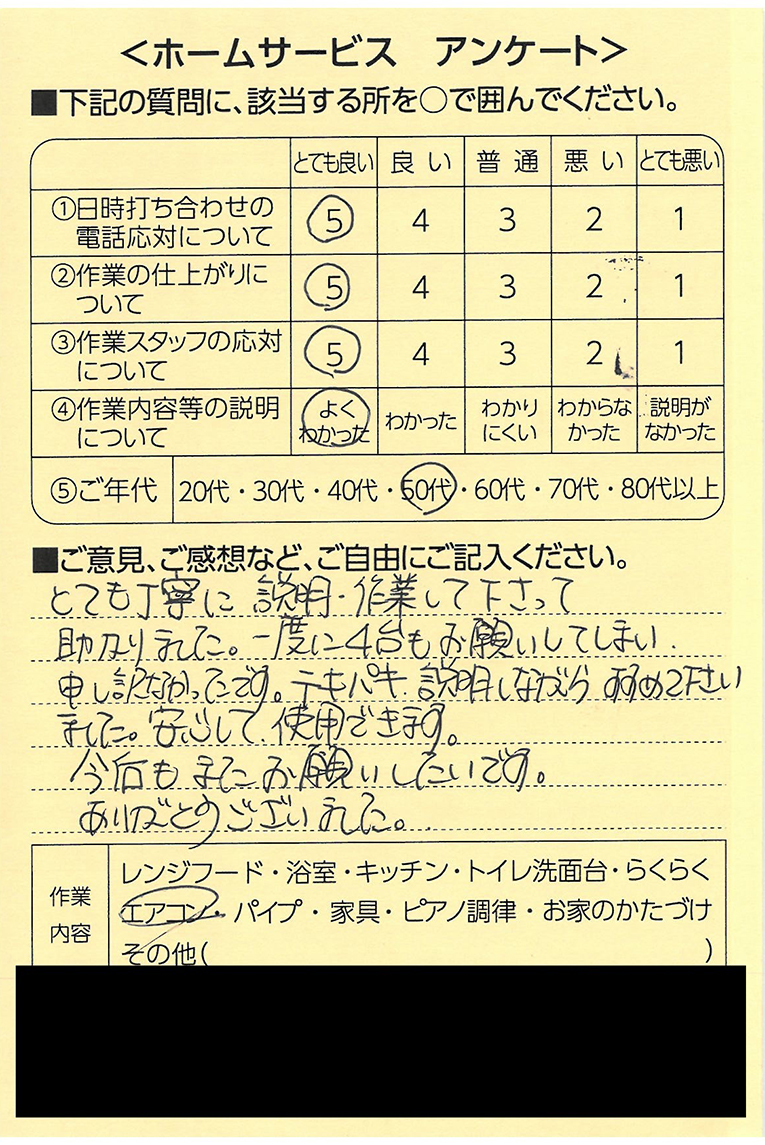 ＜ホームサービス　アンケート＞
■下記の質問に、該当する所を○で囲んでください。
とても良い 良い 普通 悪い とても悪い
①日時打ち合わせの
電話応対について 5 4 3 2 1
②作業の仕上がりに
ついて 5 4 3 2 1
③作業スタッフの応対
について 5 4 3 2 1
④作業内容等の説明
について よく
わかった わかった わかり
にくい わからな
かった 説明が
なかった
⑤ご年代 20代・30代・40代・50代・60代・70代・80代以上
■ご意見、ご感想など、ご自由にご記入ください。
とても丁寧に説明・作業して下さって
助かりました。一度に4台もお願いしてしまい
申し訳なかったです。テキパキ説明しながらすすめて下さい
ました。安心して使用できます。
今后もまたお願いしたいです。
ありがとうございました。
作業
内容
レンジフード・浴室・キッチン・トイレ洗面台・らくらく
エアコン・パイプ・家具・ピアノ調律・お家のかたづけ
その他( )